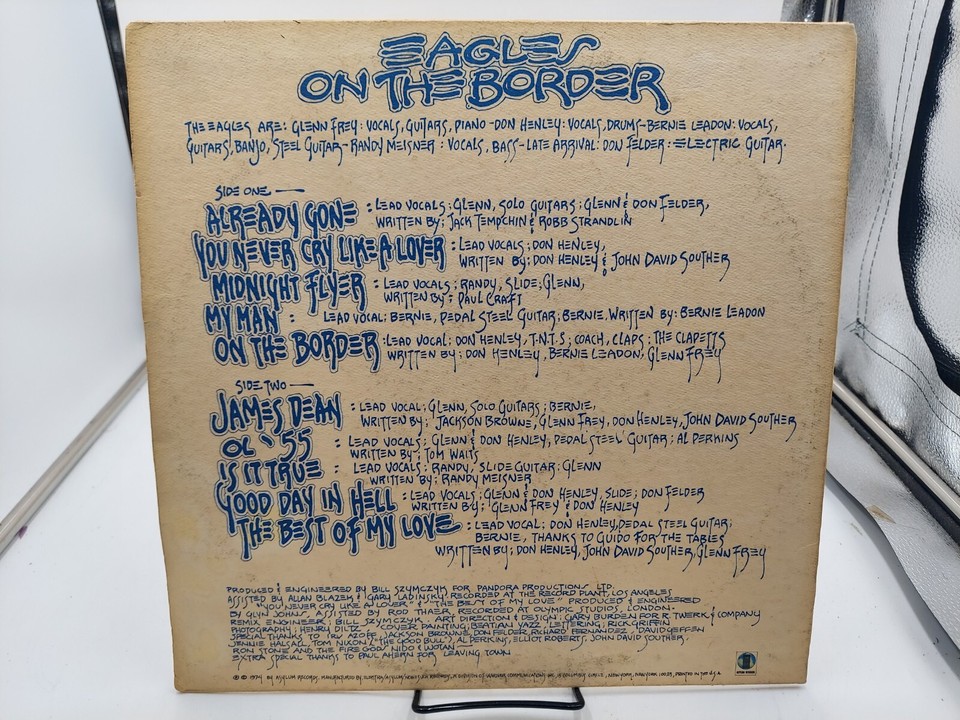 EAGLES
ON THE BORDER
THE EAGLES ARE: GLENN FREY: VOCALS, GUITARS, PIANO - DON HENLEY: VOCALS, DRUMS - BERNIE LEADON: VOCALS,
GUITARS, BANJO, STEEL GUITAR - RANDY MEISNER: VOCALS, BASS - LATE ARRIVAL: DON FELDER: ELECTRIC GUITAR.
SIDE ONE —
ALREADY GONE : LEAD VOCALS; GLENN, SOLO GUITARS; GLENN & DON FELDER,
WRITTEN BY; JACK TEMPCHIN & ROBB STRANDLIN
YOU NEVER CRY LIKE A LOVER : LEAD VOCALS; DON HENLEY,
WRITTEN BY: DON HENLEY & JOHN DAVID SOUTHER
MIDNIGHT FLYER : LEAD VOCALS; RANDY, SLIDE; GLENN,
WRITTEN BY; PAUL CRAFT
MY MAN : LEAD VOCAL: BERNIE, PEDAL STEEL GUITAR; BERNIE, WRITTEN BY: BERNIE LEADON
ON THE BORDER : LEAD VOCAL: DON HENLEY, T.N.T.S; COACH, CLAPS: THE CLAPETTS
WRITTEN BY; DON HENLEY, BERNIE LEADON, GLENN FREY
SIDE TWO —
JAMES DEAN : LEAD VOCAL; GLENN, SOLO GUITARS; BERNIE,
WRITTEN BY: JACKSON BROWNE, GLENN FREY, DON HENLEY, JOHN DAVID SOUTHER
OL' 55 : LEAD VOCALS; GLENN & DON HENLEY, PEDAL STEEL GUITAR; AL PERKINS
WRITTEN BY; TOM WAITS
IS IT TRUE : LEAD VOCALS; RANDY, SLIDE GUITAR: GLENN
WRITTEN BY: RANDY MEISNER
GOOD DAY IN HELL : LEAD VOCALS; GLENN & DON HENLEY, SLIDE; DON FELDER
WRITTEN BY; GLENN FREY & DON HENLEY
THE BEST OF MY LOVE : LEAD VOCAL; DON HENLEY, PEDAL STEEL GUITAR;
BERNIE, THANKS TO GUIDO FOR THE TABLES
WRITTEN BY; DON HENLEY, JOHN DAVID SOUTHER, GLENN FREY
PRODUCED & ENGINEERED BY BILL SZYMCZYK FOR PANDORA PRODUCTIONS LTD.
ASSISTED BY ALLAN BLAZEK & GARY LADINSKY, RECORDED AT THE RECORD PLANT, LOS ANGELES
"YOU NEVER CRY LIKE A LOVER" & "THE BEST OF MY LOVE" PRODUCED & ENGINEERED
BY GLYN JOHNS, ASSISTED BY ROD THAER, RECORDED AT OLYMPIC STUDIOS, LONDON.
REMIX ENGINEER: BILL SZYMCZYK ART DIRECTION & DESIGN: GARY BURDEN FOR R TWERK & COMPANY
PHOTOGRAPHY: HENRY DILTZ COVER PAINTING: BEATIAN YAZZ LETTERING: RICK GRIFFIN
SPECIAL THANKS TO IRV AZOFF, JACKSON BROWNE, DON FELDER, RICHARD FERNANDEZ, DAVID GEFFEN
JENNIE HALSALL, TOM NIXON ("THE GOOD BULL"), AL PERKINS, ELLIOT ROBERTS, JOHN DAVID SOUTHER,
RON STONE AND THE FIRE GOD NIDO & WOTAN
EXTRA SPECIAL THANKS TO PAUL AHERN FOR LEAVING TOWN
© ℗ 1974 BY ASYLUM RECORDS, MANUFACTURED BY